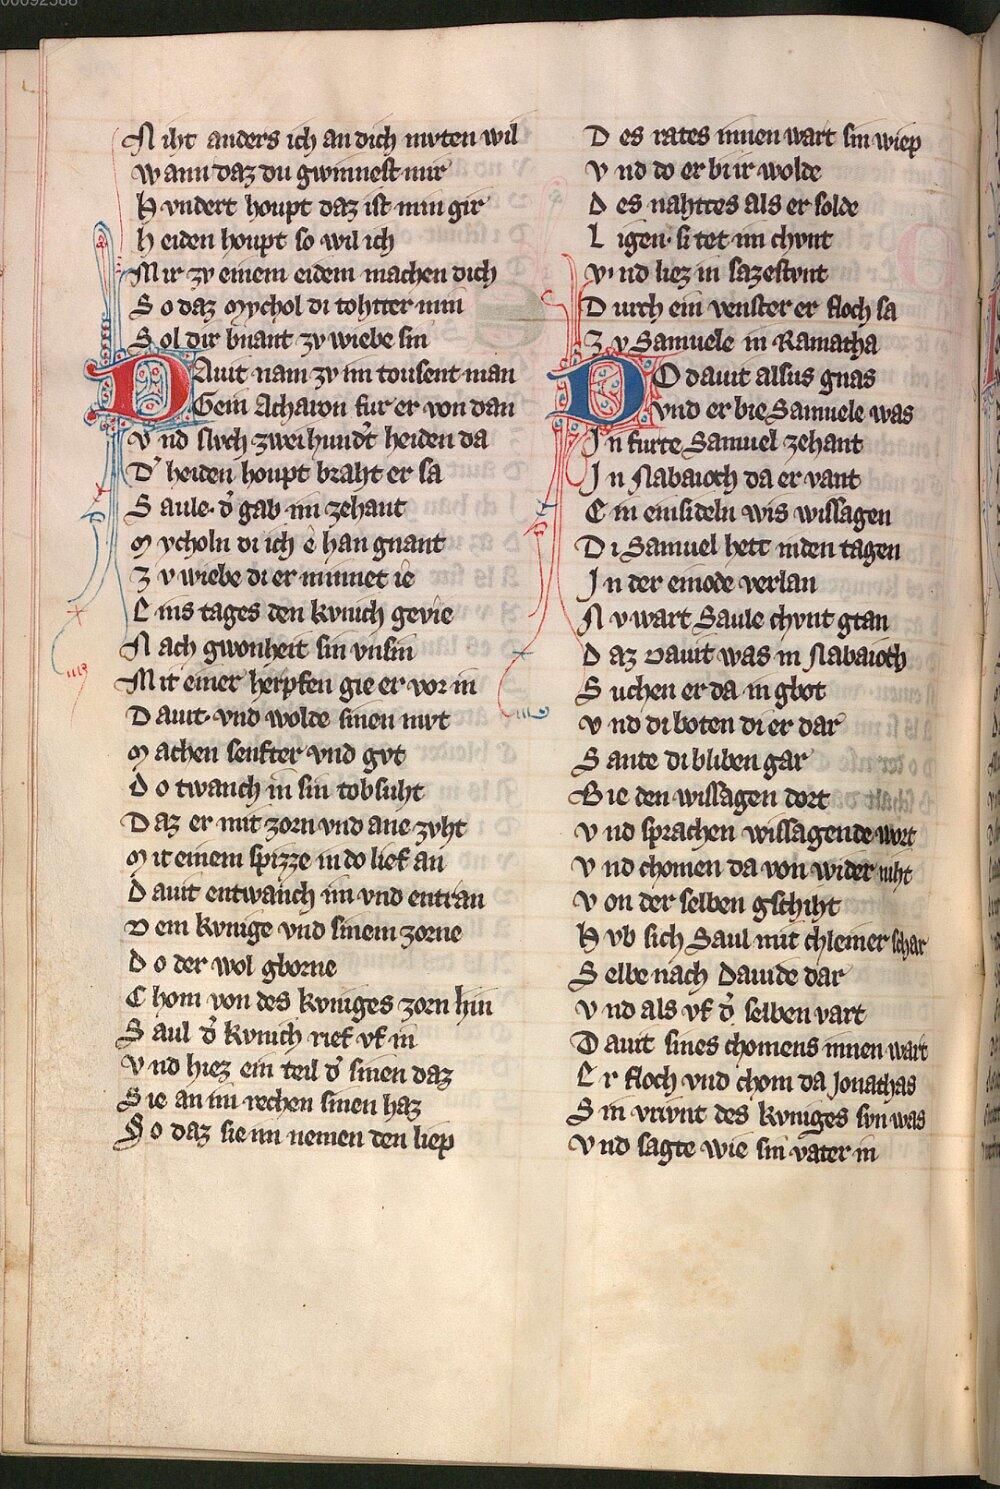 00092588
Niht anders ich an dich mvten wil
wann daz du gwinnest mir
Hvndert houpt daz ist min gir
heiden houpt so wil ich
Mir zv einem eidem machen dich
So daz Mychol di tohtter min
Sol dir bnant zv wiebe sin
Dauit nam zv im tousent man
Gein Acharon fur er von dan
vnd slvch zwei hundt̉ heiden da
D̉ heiden houpt braht er sa
Saule· d̉ gab im zehant
Mycholn di ich ê han gnant
Zv wiebe di er minnet ie
Eins tages den kvnich gevie
Nach gwonheit sin vnsin
Mit einer herpfen gie er vor in
Dauit· vnd wolde sinen mvt
Machen senfter vnd gvt
Do twanch in sin tobsuht
Daz er mit zorn vnd ane zvht
Mit einem spizze in do lief an
Dauit entwanch im vnd entran
Dem kvnige vnd sinem zorne
Do der wol gborne
Chom von des kvniges zorn hin
Saul d̉ kvnich rief vf in
vnd hiez ein teil d̉ sinen daz
Sie an im rechen sinen haz
So daz sie im nemen den liep
Des rates innen wart sin wiep
vnd do er bi ir wolde
Des nahttes als er solde
Ligen· si tet im chvnt
vnd liez in sa zestvnt
Durch ein venster er floch sa
Zv Samuele in Ramatha
Do dauit alsus gnas
vnd er bie Samuele was
In furte Samuel zehant
In Nabaioth da er vant
Ein einsideln wis wissagen
Di Samuel hett in den tagen
In der einode verlan
Nv wart Saule chvnt gtan
Daz Dauit was in Nabaioth
Suchen er da in gbot
vnd di boten di er dar
Sante di bliben gar
Bie den wissagen dort
vnd sprachen wissagende wort
vnd chomen da von wider niht
von der selben gschiht
Hvb sich Saul mit chleiner schar
Selbe nach Dauide dar
vnd als vf d̉ selben vart
Dauit sines chomens innen wart
Er floch vnd chom da Jonathas
Sin vrivnt des kvniges svn was
vnd sagte wie sin vater in